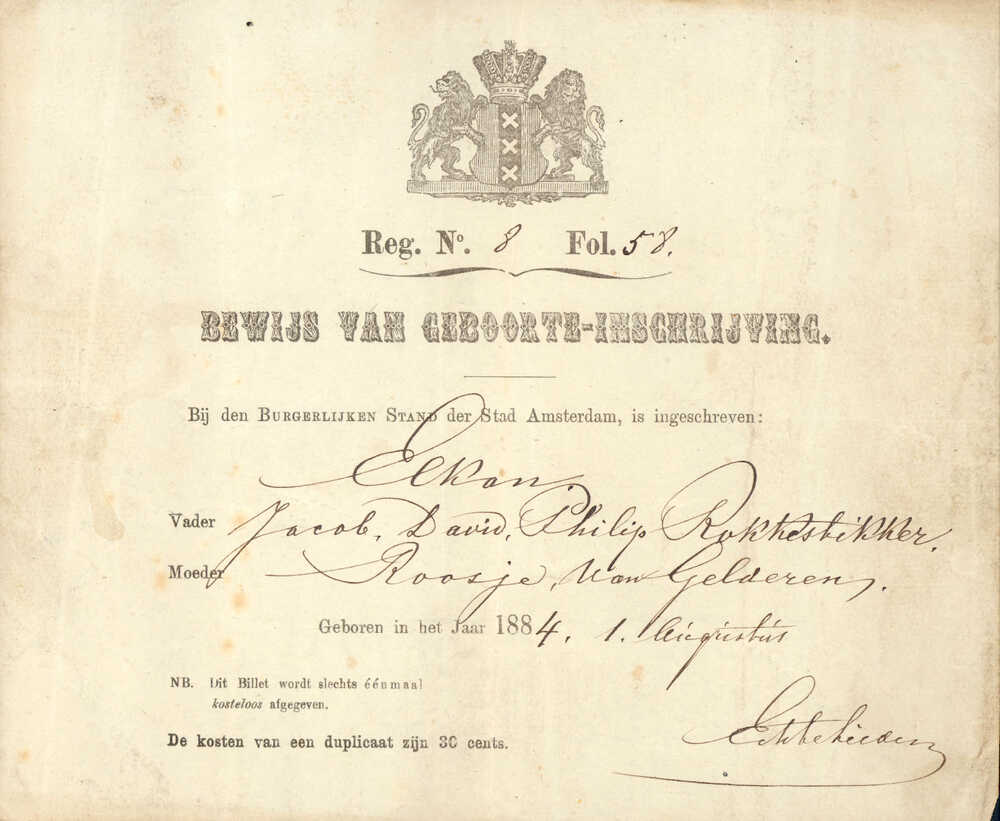 Reg. No. 8 Fol. 58.
BEWIJS VAN GEBOORTE-INSCHRIJVING.
Bij den BURGERLIJKEN STAND der Stad Amsterdam, is ingeschreven:
Elkan.
Vader Jacob, David, Philip Rokkesbikker.
Moeder Roosje, van Gelderen.
Geboren in het Jaar 1884. 1. Augustus
NB. Dit Billet wordt slechts éénmaal
kosteloos afgegeven.
De kosten van een duplicaat zijn 30 cents.